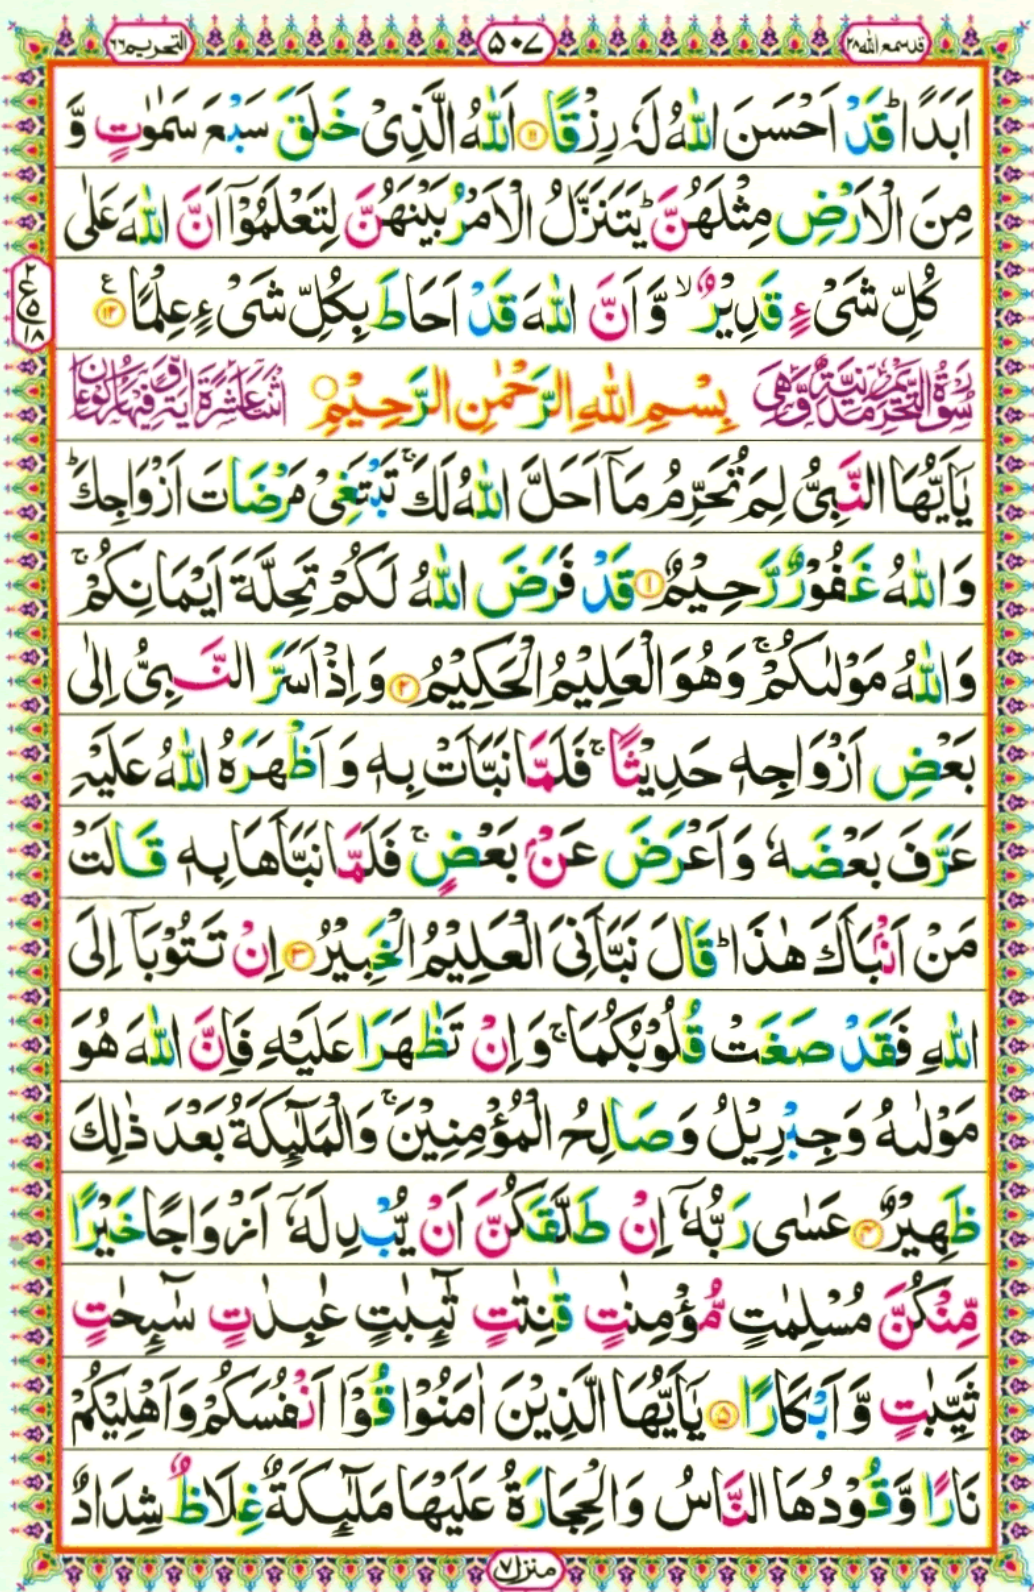 قد سمع الله ٢٨
٥٠٧
التحریم ٦٦
اَبَدًا ؕ قَدْ اَحْسَنَ اللّٰهُ لَهٗ رِزْقًا ۝۱۱ اَللّٰهُ الَّذِیْ خَلَقَ سَبْعَ سَمٰوٰتٍ وَّ
مِنَ الْاَرْضِ مِثْلَهُنَّ ؕ یَتَنَزَّلُ الْاَمْرُ بَیْنَهُنَّ لِتَعْلَمُوْۤا اَنَّ اللّٰهَ عَلٰی
كُلِّ شَیْءٍ قَدِیْرٌ ۙ۬ وَّ اَنَّ اللّٰهَ قَدْ اَحَاطَ بِكُلِّ شَیْءٍ عِلْمًا ۝۱۲ ع
٢
ع
٥
١٨
سُوْرَةُ التَّحْرِیْمِ مَدَنِیَّةٌ وَّهِیَ
بِسْمِ اللّٰهِ الرَّحْمٰنِ الرَّحِیْمِ
اثْنَتَا عَشْرَةَ اٰیَةً وَّفِیْهَا رُكُوْعَانِ
یٰۤاَیُّهَا النَّبِیُّ لِمَ تُحَرِّمُ مَاۤ اَحَلَّ اللّٰهُ لَكَ ۚ تَبْتَغِیْ مَرْضَاتَ اَزْوَاجِكَ ؕ
وَ اللّٰهُ غَفُوْرٌ رَّحِیْمٌ ۝۱ قَدْ فَرَضَ اللّٰهُ لَكُمْ تَحِلَّةَ اَیْمَانِكُمْ ۚ
وَ اللّٰهُ مَوْلٰىكُمْ ۚ وَهُوَ الْعَلِیْمُ الْحَكِیْمُ ۝۲ وَ اِذْ اَسَرَّ النَّبِیُّ اِلٰی
بَعْضِ اَزْوَاجِهٖ حَدِیْثًا ۚ فَلَمَّا نَبَّاَتْ بِهٖ وَ اَظْهَرَهُ اللّٰهُ عَلَیْهِ
عَرَّفَ بَعْضَهٗ وَ اَعْرَضَ عَنْۢ بَعْضٍ ۚ فَلَمَّا نَبَّاَهَا بِهٖ قَالَتْ
مَنْ اَنْۢبَاَكَ هٰذَا ؕ قَالَ نَبَّاَنِیَ الْعَلِیْمُ الْخَبِیْرُ ۝۳ اِنْ تَتُوْبَاۤ اِلَی
اللّٰهِ فَقَدْ صَغَتْ قُلُوْبُكُمَا ۚ وَ اِنْ تَظٰهَرَا عَلَیْهِ فَاِنَّ اللّٰهَ هُوَ
مَوْلٰىهُ وَ جِبْرِیْلُ وَ صَالِحُ الْمُؤْمِنِیْنَ ۚ وَ الْمَلٰٓىِٕكَةُ بَعْدَ ذٰلِكَ
ظَهِیْرٌ ۝۴ عَسٰی رَبُّهٗۤ اِنْ طَلَّقَكُنَّ اَنْ یُّبْدِلَهٗۤ اَزْوَاجًا خَیْرًا
مِّنْكُنَّ مُسْلِمٰتٍ مُّؤْمِنٰتٍ قٰنِتٰتٍ تٰٓىِٕبٰتٍ عٰبِدٰتٍ سٰٓىِٕحٰتٍ
ثَیِّبٰتٍ وَّ اَبْكَارًا ۝۵ یٰۤاَیُّهَا الَّذِیْنَ اٰمَنُوْا قُوْۤا اَنْفُسَكُمْ وَ اَهْلِیْكُمْ
نَارًا وَّ قُوْدُهَا النَّاسُ وَ الْحِجَارَةُ عَلَیْهَا مَلٰٓىِٕكَةٌ غِلَاظٌ شِدَادٌ
منزل ٧